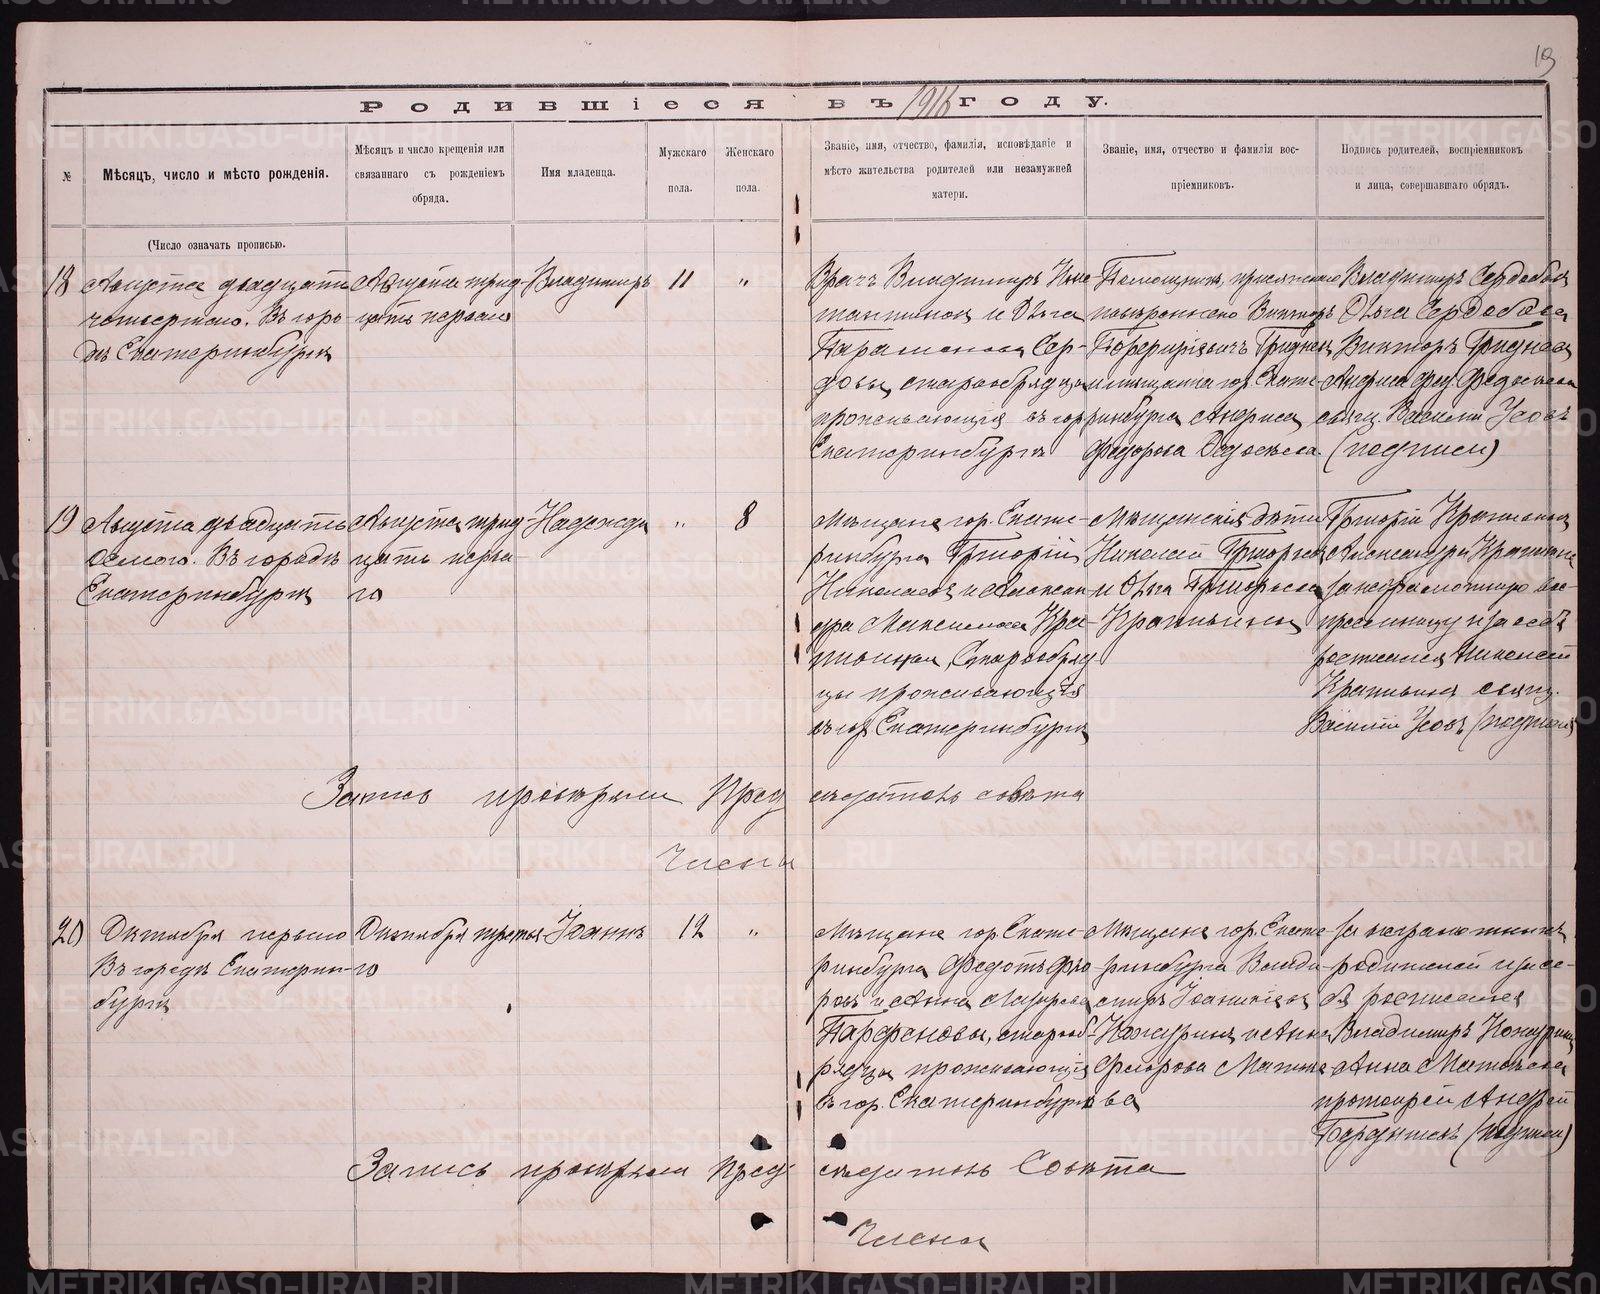 19
Родившіеся въ 1916 году.
№
Мѣсяцъ, число и мѣсто рожденія.
Мѣсяцъ и число крещенія или
связаннаго съ рожденіемъ
обряда.
Имя младенца.
Мужскаго
пола.
Женскаго
пола.
Званіе, имя, отчество, фамилія, исповѣданіе и
мѣсто жительства родителей или незамужней
матери.
Званіе, имя, отчество и фамилія вос-
пріемниковъ.
Подпись родителей, воспріемниковъ
и лица, совершавшаго обрядъ.
(Число означать прописью.
18
Августа двадцать
четвертаго. Въ горо-
дѣ Екатеринбургѣ
Августа трид-
цать перваго
Владимиръ
11
"
Врачъ Владимиръ
и Ольга
Парамонова Сер-
старообрядцы
проживающія въ гор.
Екатеринбургѣ
Помощникъ присяжнаго
повѣреннаго Викторъ
Порфирьевичъ
и мѣщанка гор. Екате-
ринбурга
Федорова
Владимиръ Сердобовъ
Ольга Сердобова
Викторъ
свящ. Василій Усовъ
(подписи)
19
Августа двадцать
седьмого. Въ городѣ
Екатеринбургѣ
Августа трид-
цать перва-
го
Надежда
"
8
Мѣщане гор. Екате-
ринбурга Григорій
Николаевъ и Алексан-
дра Максимова Кра-
пивины, Старообряд
цы проживающія
въ гор. Екатеринбургѣ
Мѣщанскія дѣти
Николай Григорьевъ
и Ольга Григорьева
Крапивины
Григорій Крапивинъ
Александра Крапивина
за неграмотную вос-
пріемницу и за себя
росписался Николай
Крапивинъ свящ.
Василій Усовъ (подписи)
Запись провѣрили Пред
сѣдатель совѣта
Члены
20
Октября перваго
Въ городѣ Екатерин-
бургѣ
Октября третья-
го
Іоаннъ
12
"
Мѣщане гор. Екате-
ринбурга Федотъ
и Анна
Парфеновы, старооб-
рядцы проживающія
въ гор. Екатеринбургѣ
Мѣщане гор. Екате-
ринбурга Влади-
миръ
Кокаринъ и Анна
Матвѣе-
ва
За неграмотныхъ
родителей и за се-
бя росписался
Владимиръ Кокаринъ
Анна Матвѣева
протоіерей Андрей
(подписи)
Запись провѣрили Пред
сѣдатель Совѣта
Члены
METRIKI.GASO-URAL.RU